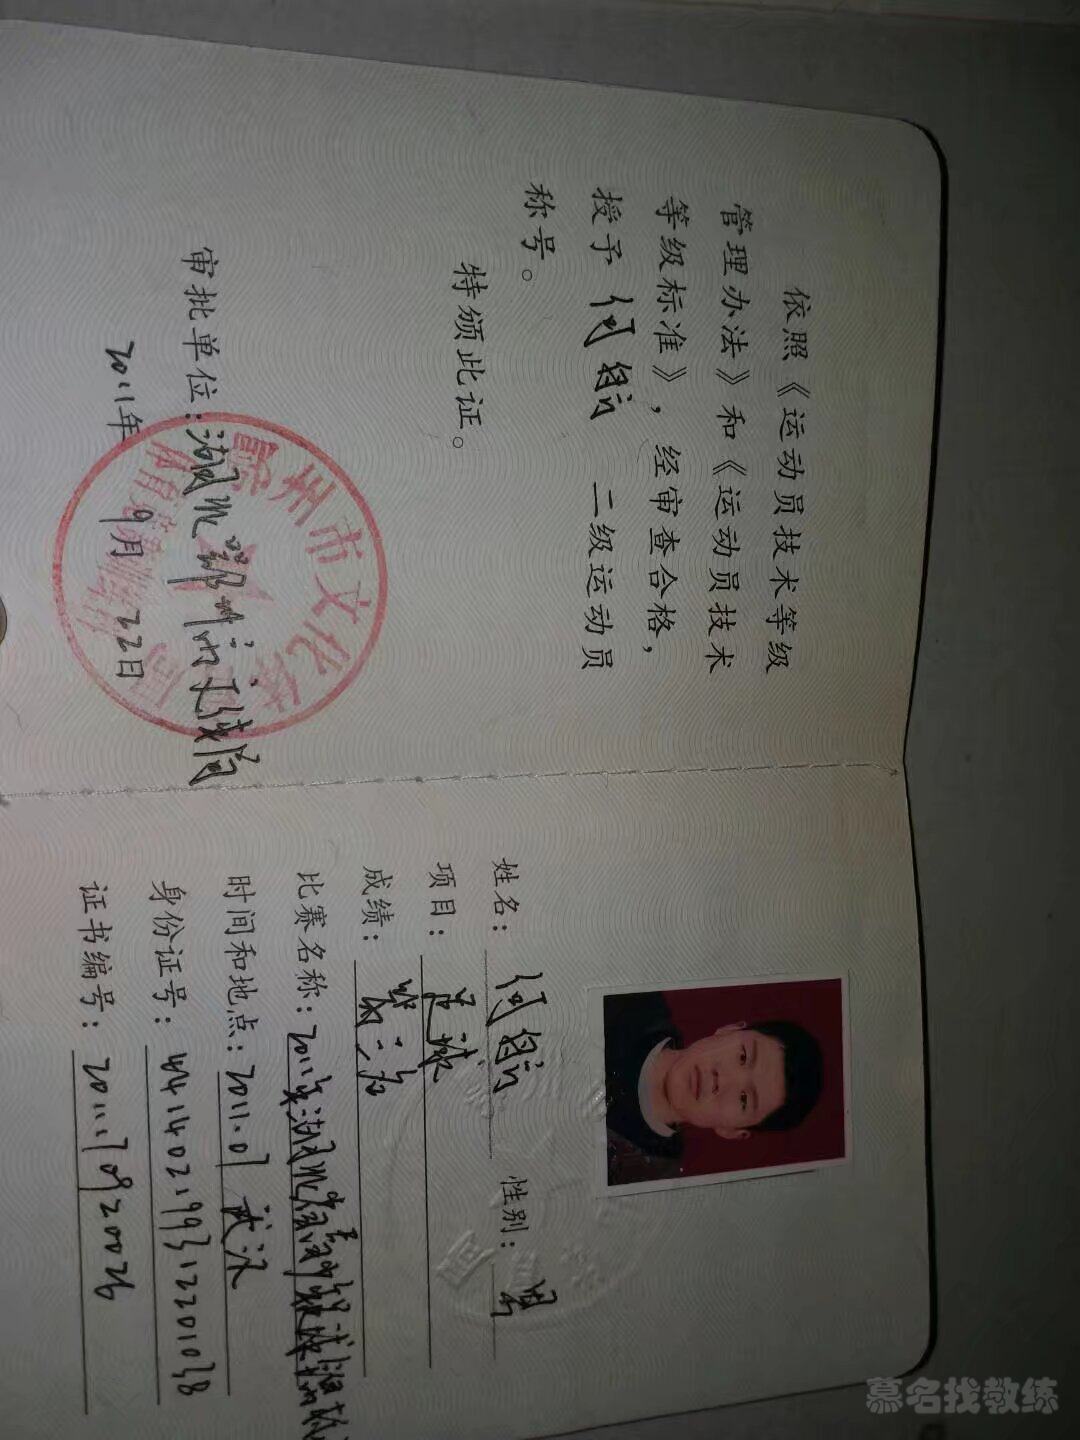 依照《运动员技术等级
管理办法》和《运动员技术
等级标准》，经审查合格，
授予 何 二级运动员
称号。
特颁此证。
审批单位：湖北鄂州市文体局
2011年9月22日
鄂州市文化体 局
姓名：何 性别：男
项目：足球
成绩：第三名
比赛名称：2011年湖北省
时间和地点：2011.07 武汉
身份证号：441402199312201038
证书编号：
慕名找教练